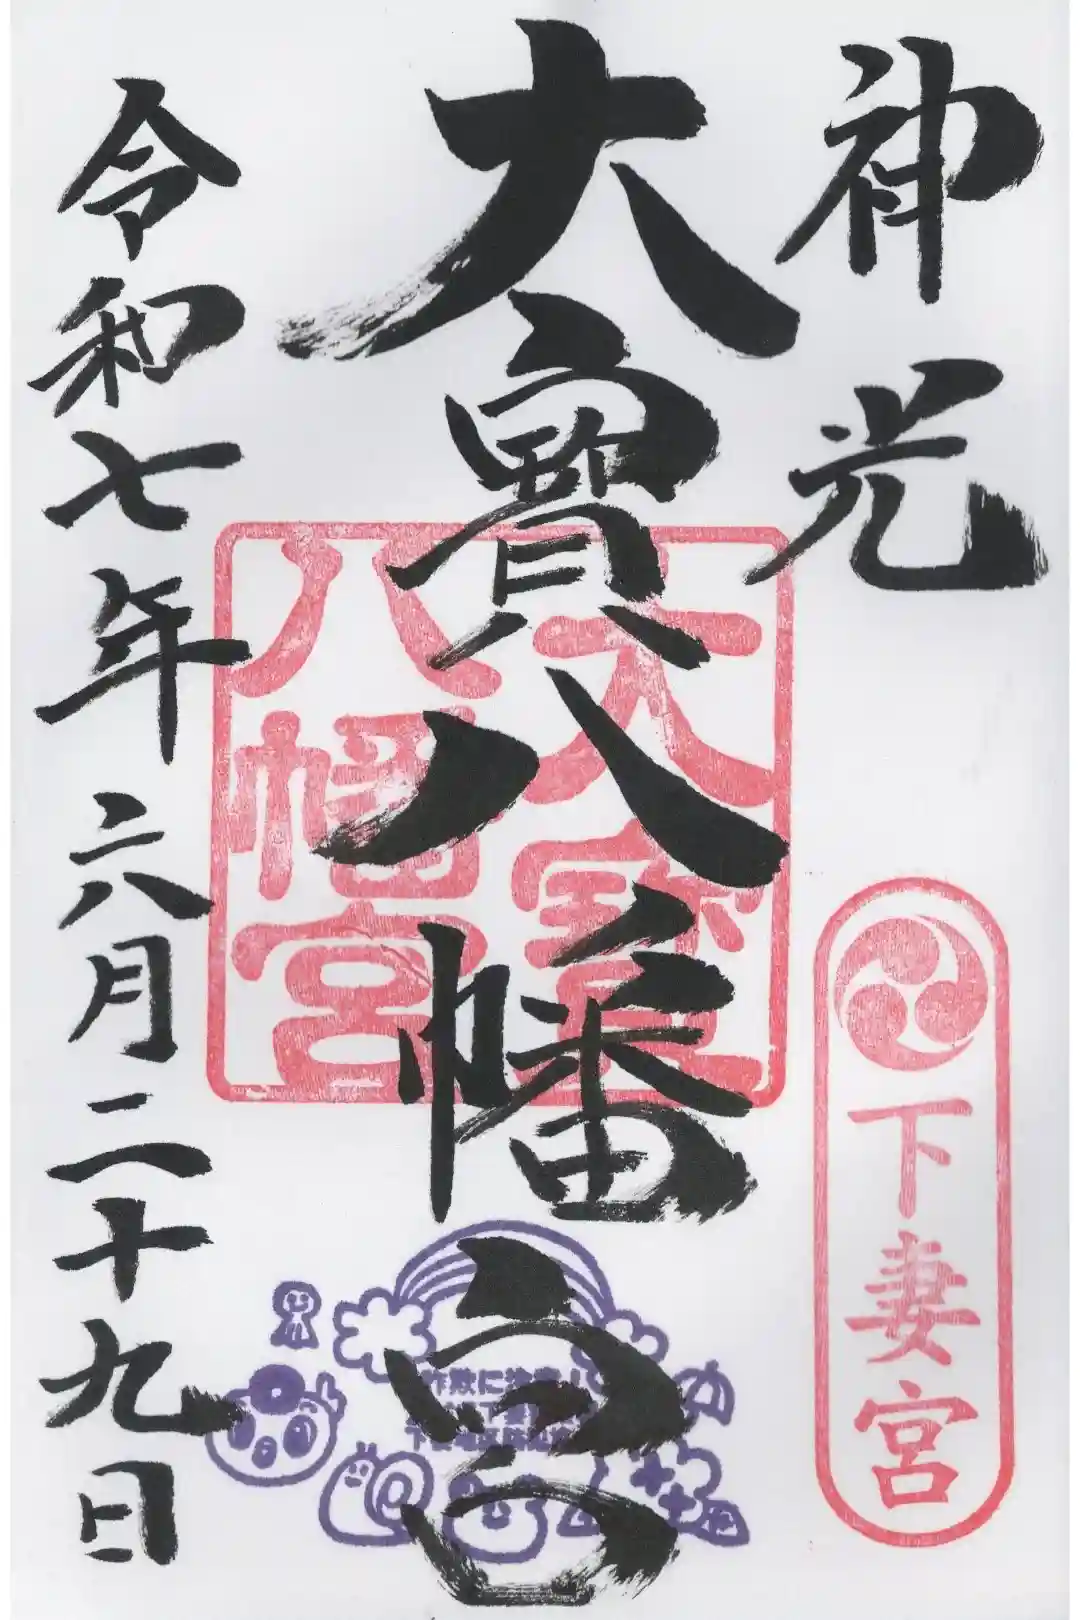 神光
下妻宮
大寶八幡宮
大寶
八幡宮
令和七年六月二十九日